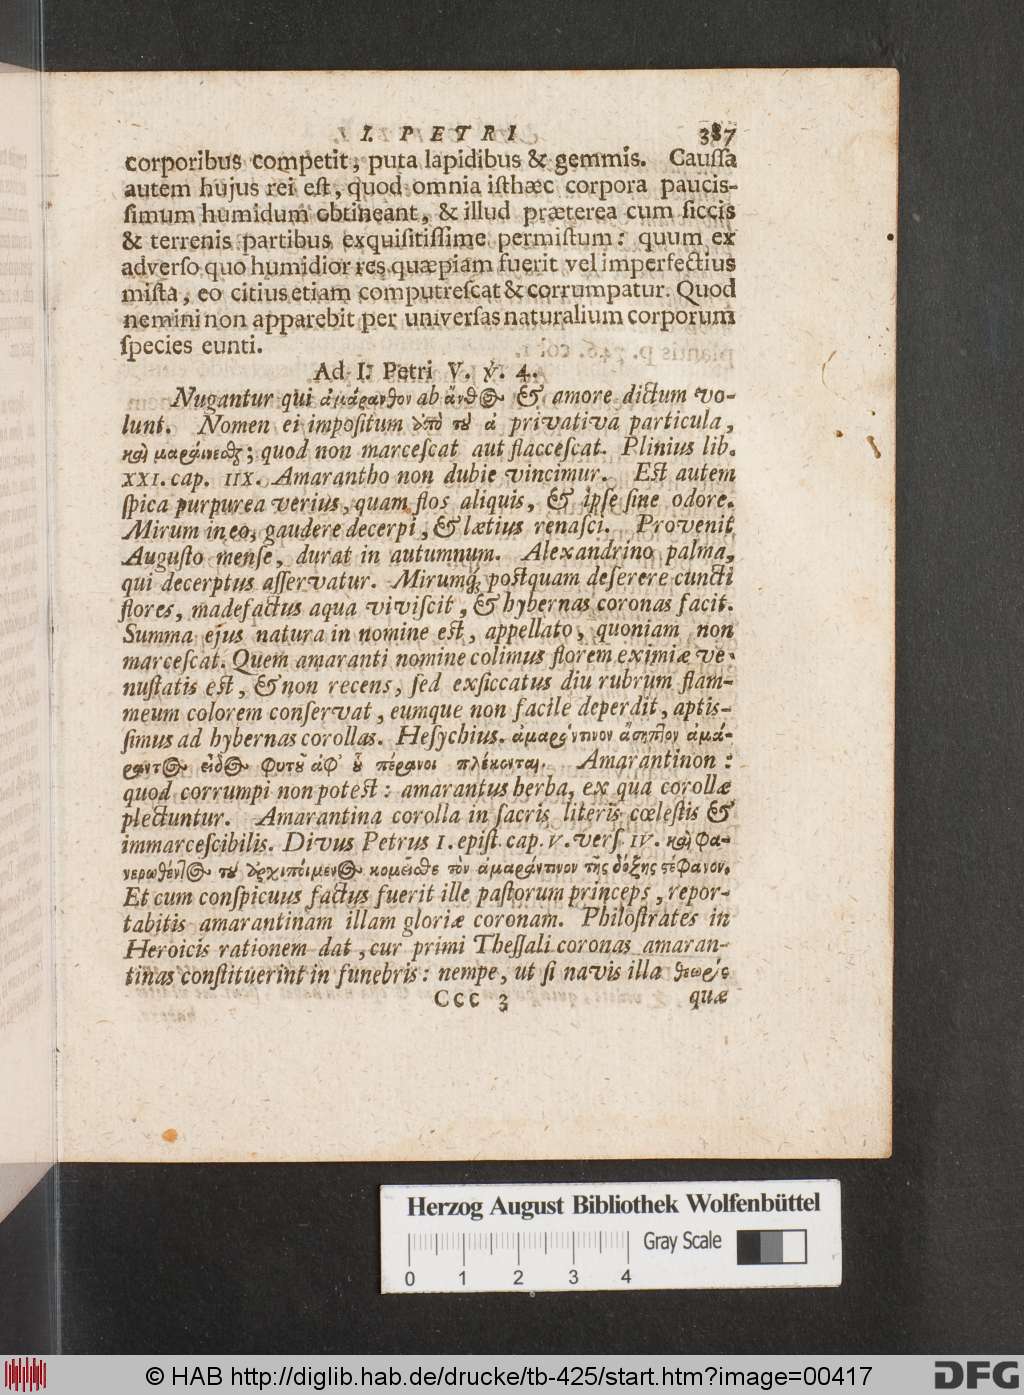 I. PETRI 387
corporibus competit, puta lapidibus & gemmis. Caussa
autem hujus rei est, quod omnia isthæc corpora paucis-
simum humidum obtineant, & illud præterea cum siccis
& terrenis partibus exquisitissime permistum: quum ex
adverso quo humidior res quæpiam fuerit vel imperfectius
mista, eo citius etiam computrescat & corrumpatur. Quod
nemini non apparebit per universas naturalium corporum
species eunti.
Ad I. Petri V. ℣. 4.
Nugantur qui ἀμάρανθον ab ἄνθος & amore dictum vo-
lunt. Nomen ei impositum ἀπὸ τοῦ ἀ privativa particula,
καὶ μαραίνεσθαι; quod non marcescat aut flaccescat. Plinius lib.
XXI. cap. IIX. Amarantho non dubie vincimur. Est autem
spica purpurea verius, quam flos aliquis, & ipse sine odore.
Mirum in eo, gaudere decerpi, & lætius renasci. Provenit
Augusto mense, durat in autumnum. Alexandrino palma,
qui decerptus asservatur. Mirumq; postquam deserere cuncti
flores, madefactus aqua viviscit, & hybernas coronas facit.
Summa ejus natura in nomine est, appellato, quoniam non
marcescat. Quem amaranti nomine colimus florem eximiæ ve-
nustatis est, & non recens, sed exsiccatus diu rubrum flam-
meum colorem conservat, eumque non facile deperdit, aptis-
simus ad hybernas corollas. Hesychius. ἀμαράντινον ἄσηπτον ἀμά-
ραντος εἶδος φυτοῦ ἀφ' οὗ πλέκονται. Amarantinon:
quod corrumpi non potest: amarantus herba, ex qua corollæ
plectuntur. Amarantina corolla in sacris literis cœlestis &
immarcescibilis. Divus Petrus I. epist. cap. V. vers. IV. καὶ φα-
νερωθέντος τοῦ ἀρχιποίμενος κομεῖσθε τὸν ἀμαράντινον τῆς δόξης στέφανον.
Et cum conspicuus factus fuerit ille pastorum princeps, repor-
tabitis amarantinam illam gloriæ coronam. Philostrates in
Heroicis rationem dat, cur primi Thessali coronas amaran-
tinas constituerint in funebris: nempe, ut si navis illa θεωρὶς
Ccc 3 quæ
Herzog August Bibliothek Wolfenbüttel
Gray Scale
0 1 2 3 4
© HAB http://diglib.hab.de/drucke/tb-425/start.htm?image=00417
DFG